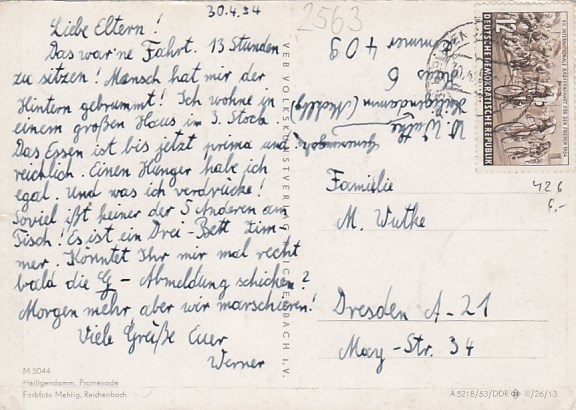 30.4.54
2563
Liebe Eltern!
Das war'ne Fahrt. 13 Stunden
zu sitzen! Mensch hat mir der
Hintern gebrummt! Ich wohne in
einem großen Haus im 3. Stock.
Das Essen ist bis jetzt prima und
reichlich. Einen Hunger habe ich
egal. Und was ich verdrücke!
Soviel ißt keiner der 5 Anderen am
Tisch! Es ist ein Drei-Bett Zim-
mer. Könntet Ihr mir mal recht
bald die G-Abmeldung schicken?
Morgen mehr, aber wir marschieren!
Viele Grüße Euer
Werner
M 5044
Heiligendamm, Promenade
Farbfoto Mehlig, Reichenbach
VEB VOLKSKUNSTVERLAG REICHENBACH i.V.
W. Wutke
Heiligendamm (Meckl)
Haus 6
Zimmer 409
12
DEUTSCHE DEMOKRATISCHE REPUBLIK
VII. INTERNATIONALE RADFERNFAHRT FÜR DEN FRIEDEN 1954
426
6,-
Familie
M. Wutke
Dresden A-21
May-Str. 34
A 5218/53/DDR III/26/13